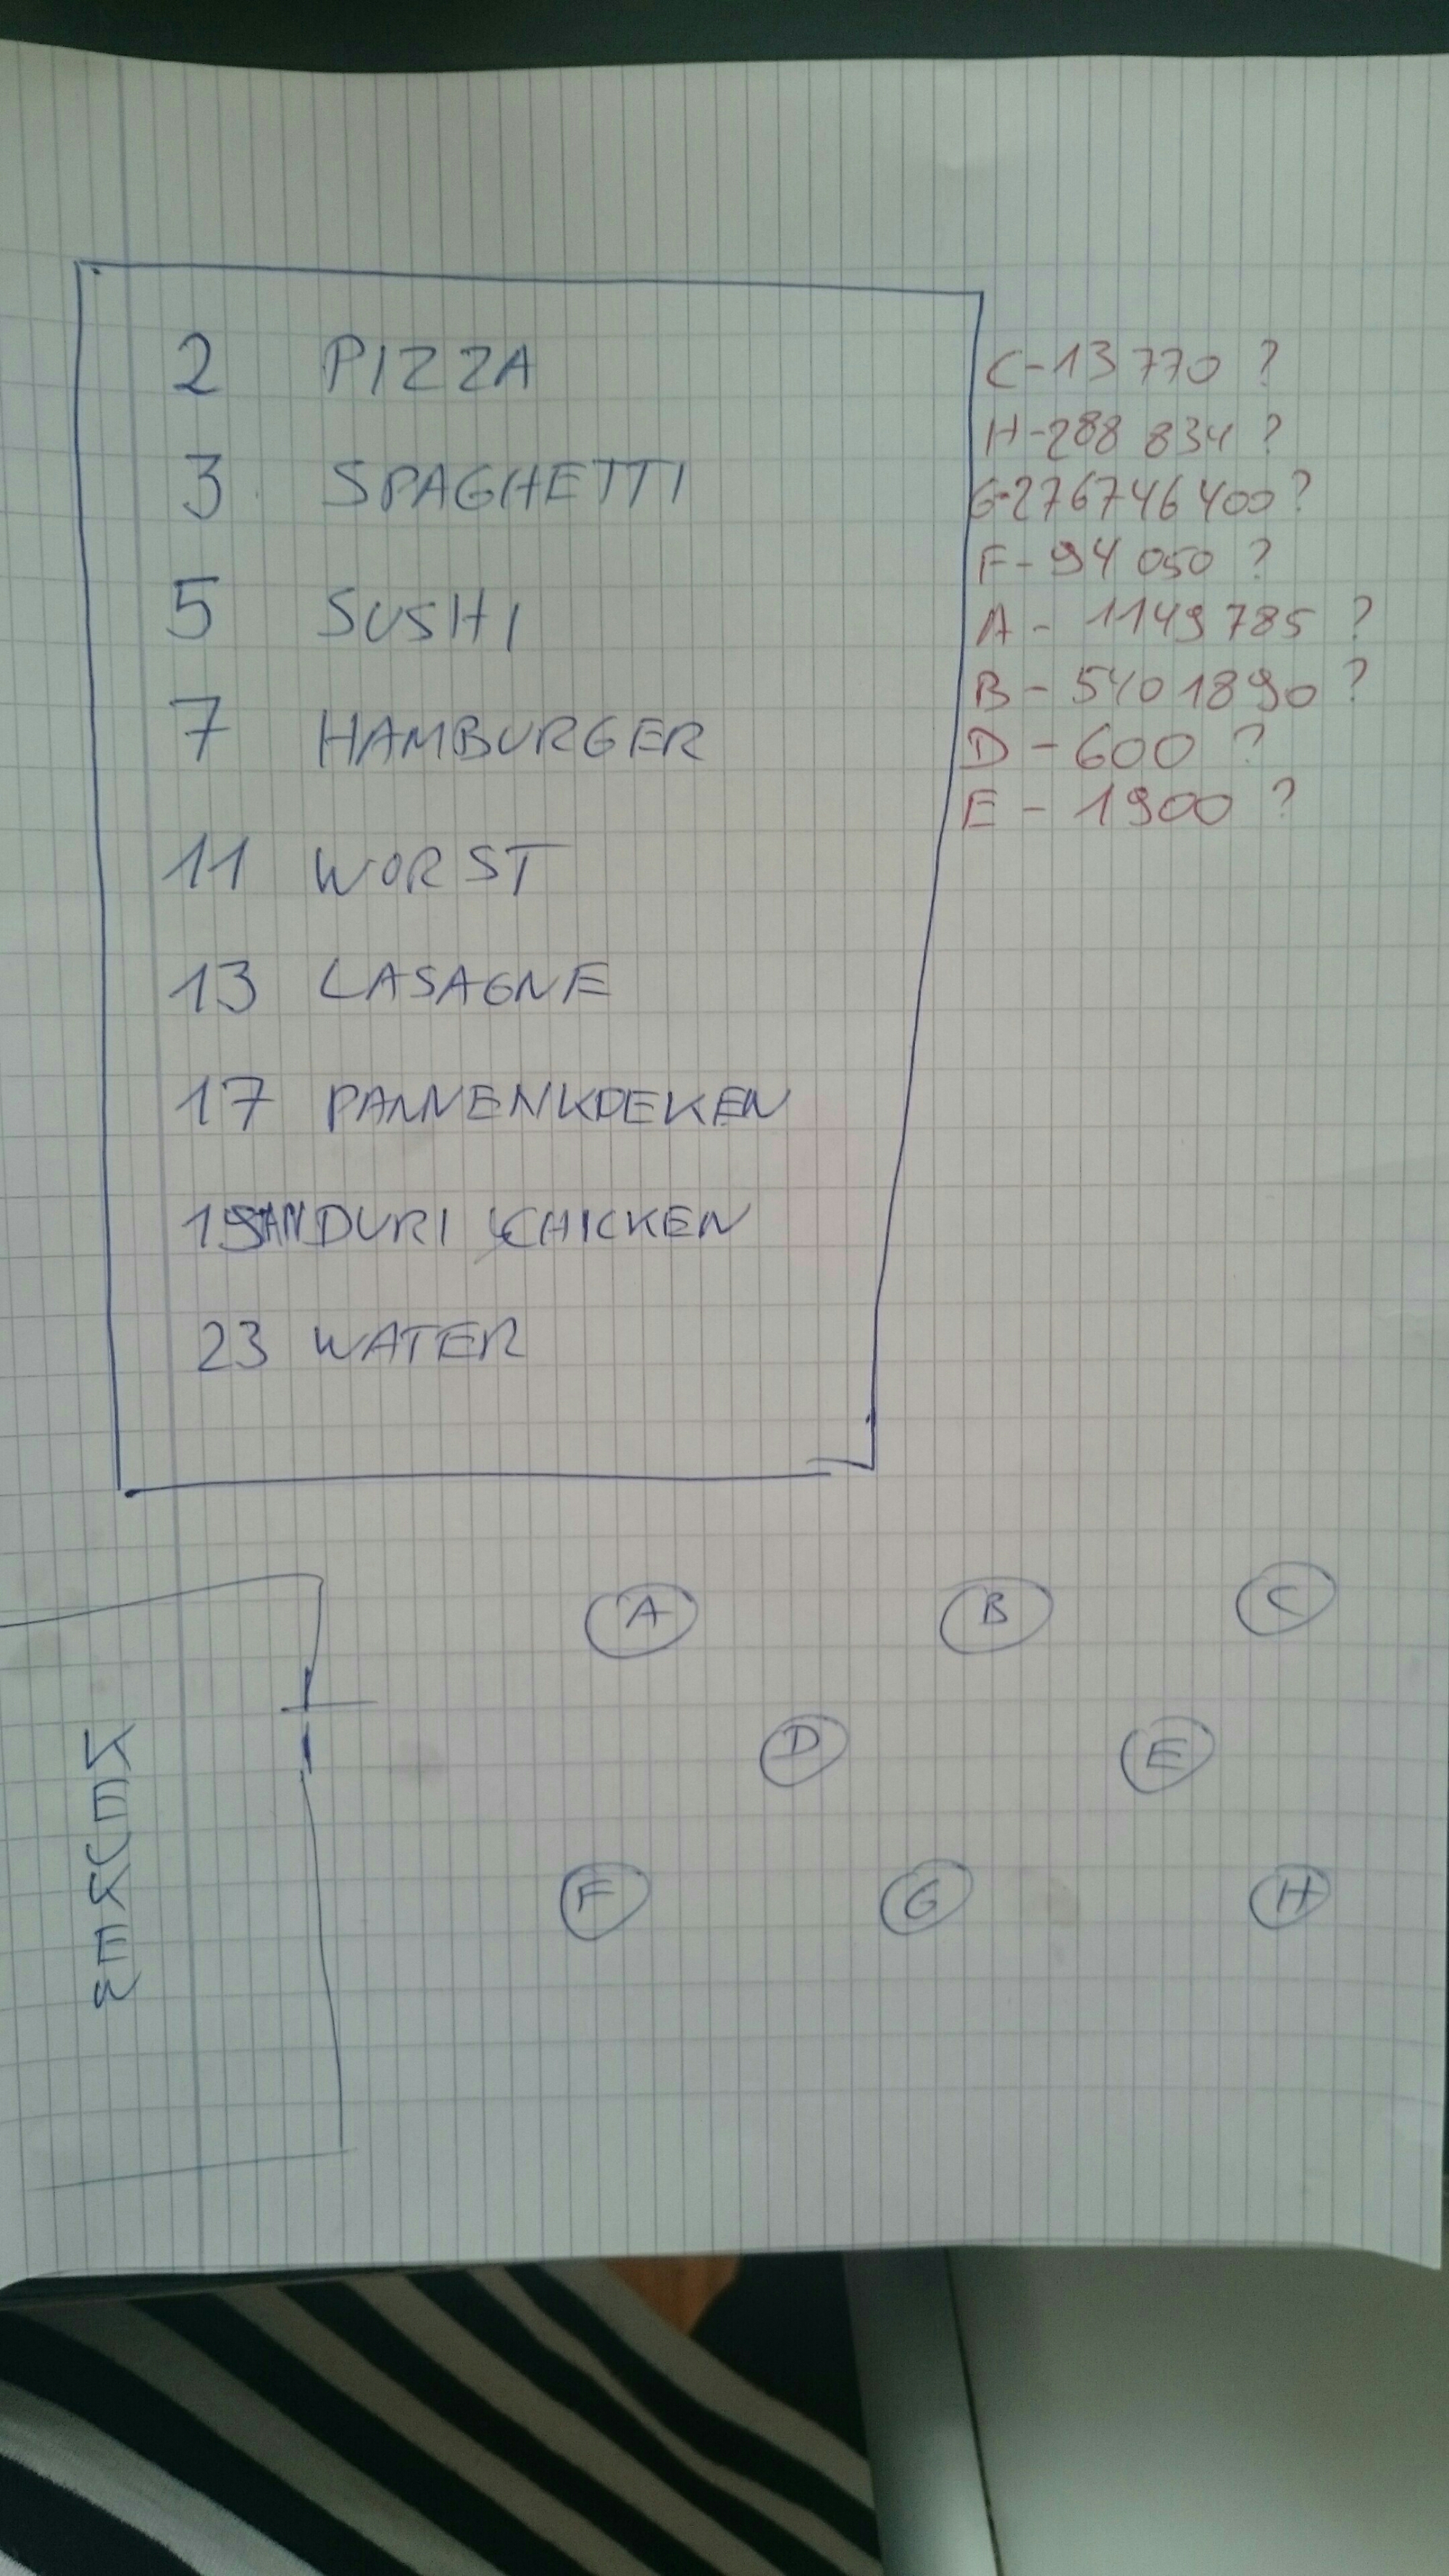 2 PIZZA
3 SPAGHETTI
5 SUSHI
7 HAMBURGER
11 WORST
13 LASAGNE
17 PANNENKOEKEN
19 TANDURI CHICKEN
23 WATER
C-13 770 ?
H-288 834 ?
G-276746400?
F-94 050 ?
A - 1149 785 ?
B - 540 1890 ?
D - 600 ?
E - 1900 ?
A B C
D E
F G H
KEUKEN